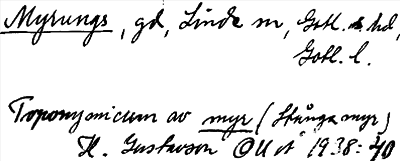 Myrungs, gd, Linde sn, Gotl. hd,
Gotl. l.
Toponymicum av myr (Stånga myr)
H. Gustavson OUÅ 1938: 40